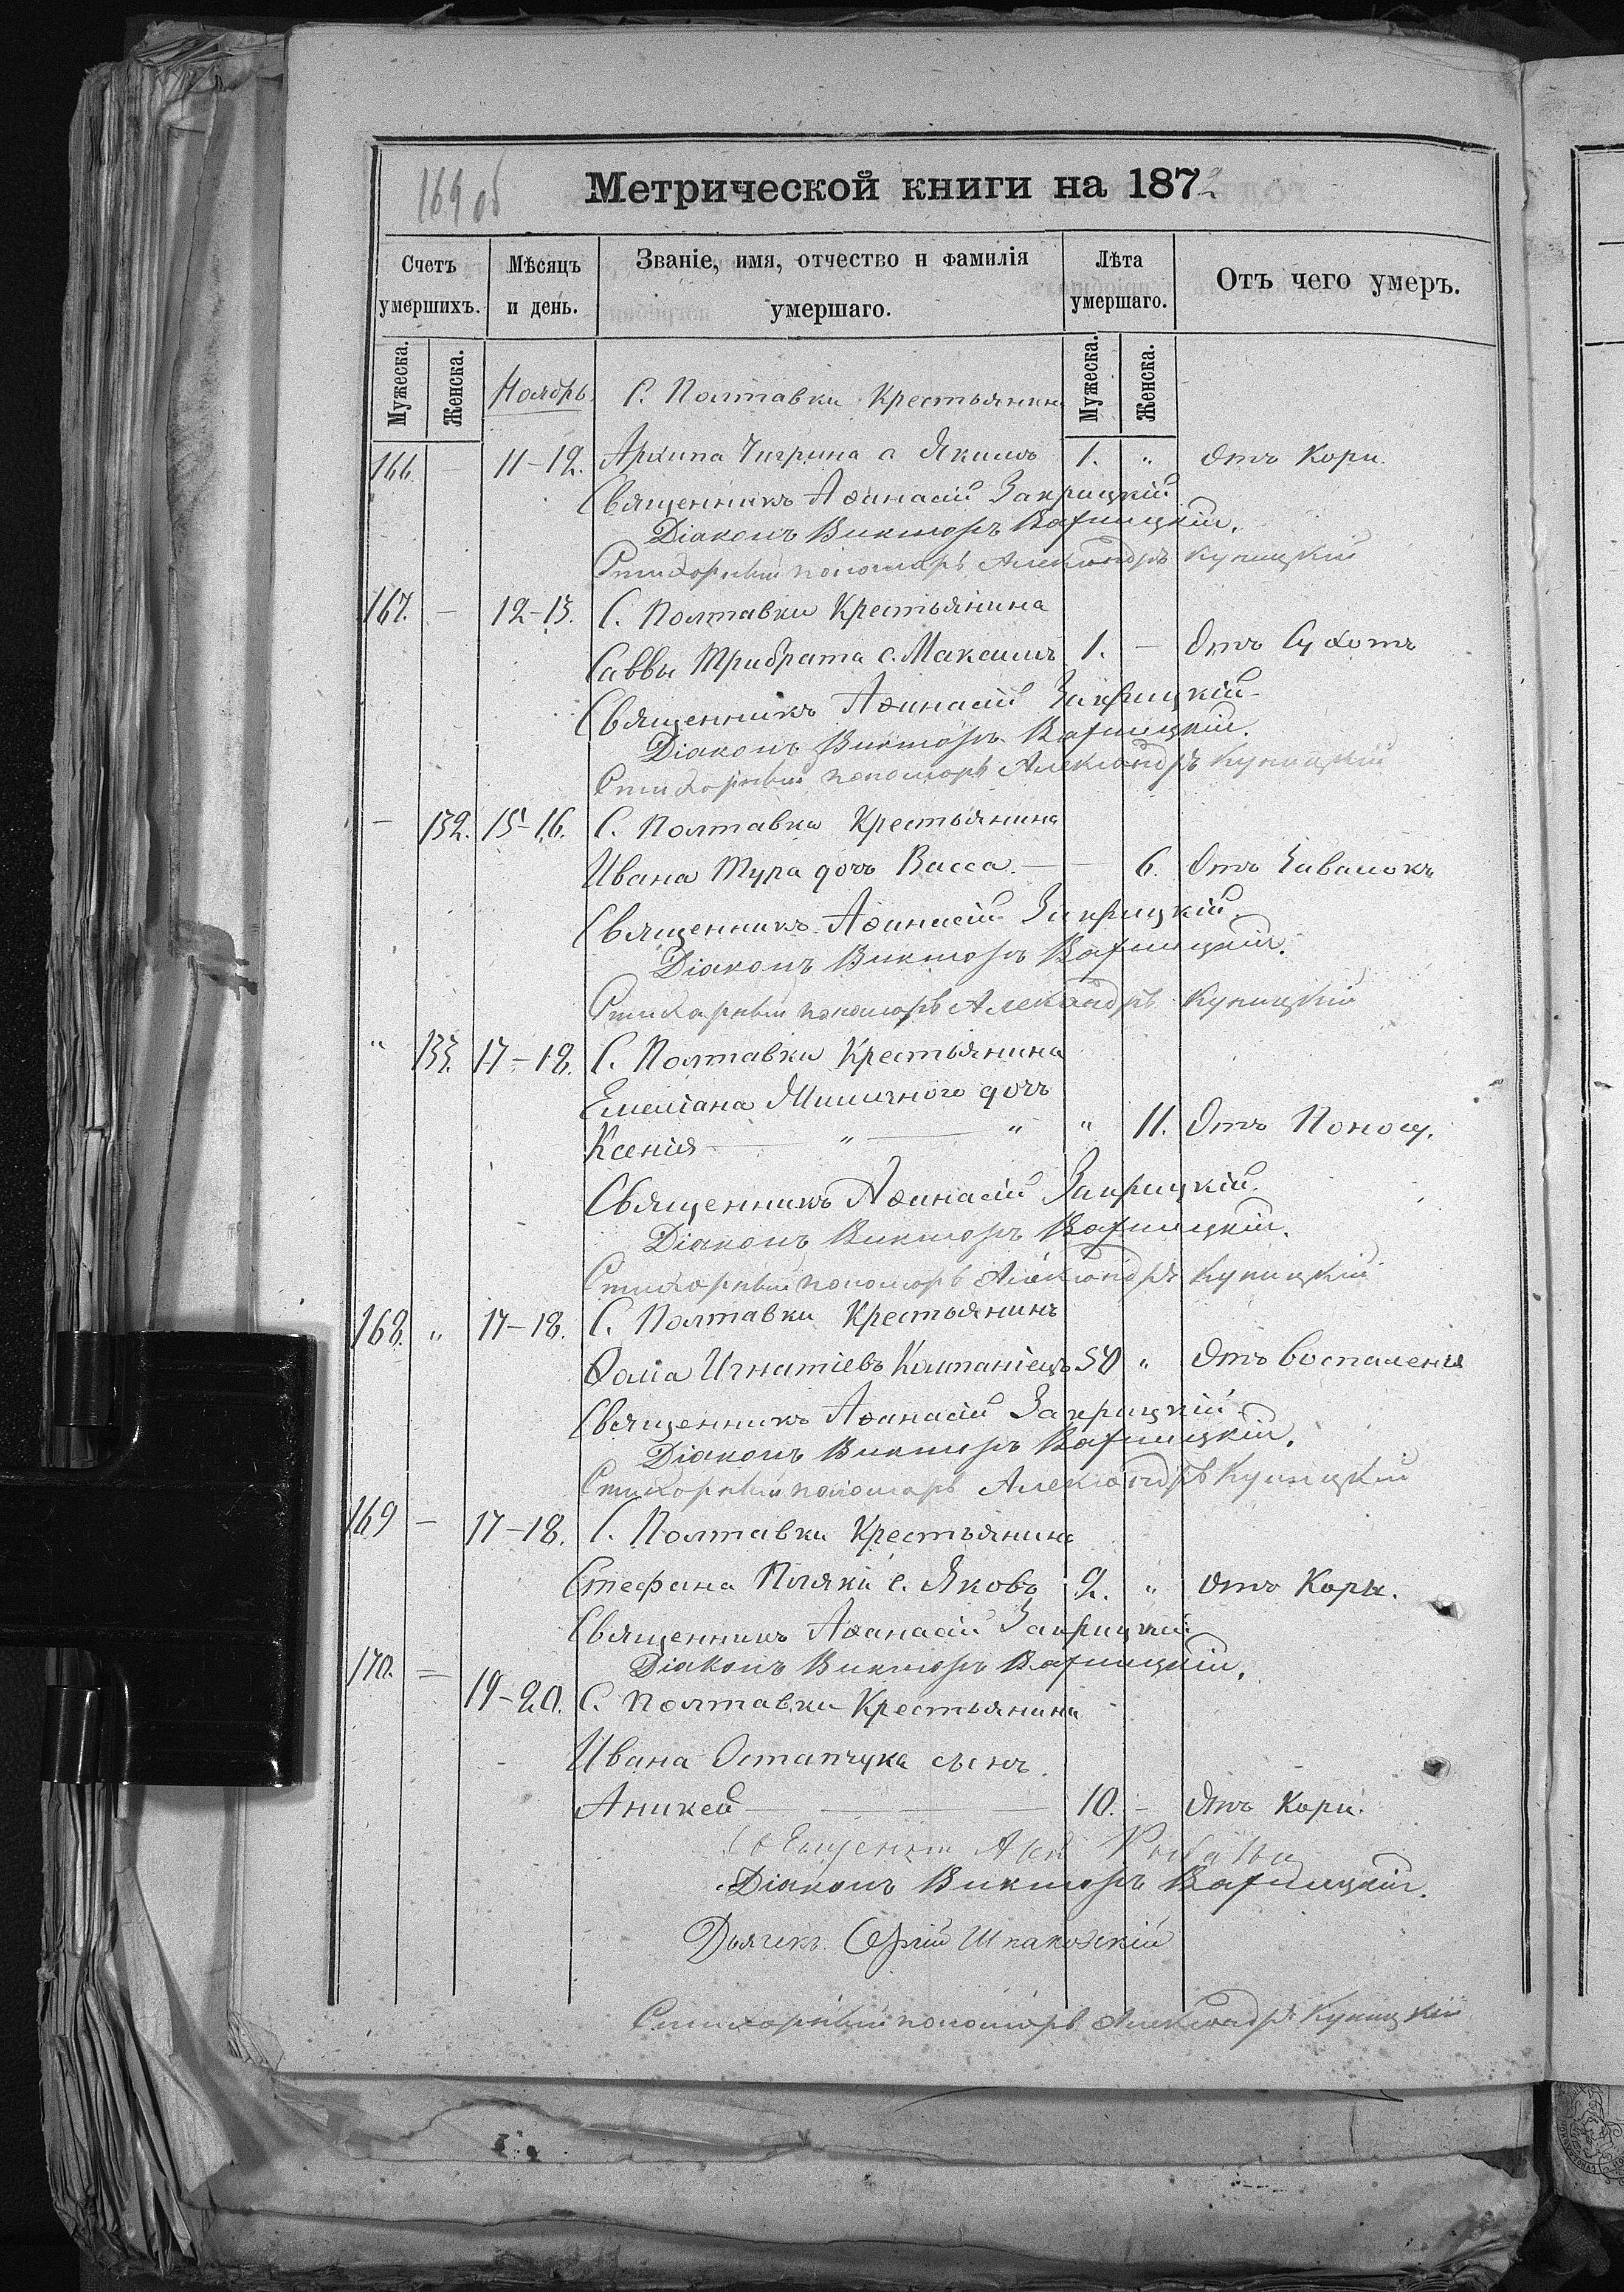 169 об
Метрической книги на 1872
Счетъ умершихъ.
Мѣсяцъ и день.
Званіе, имя, отчество и фамилія умершаго.
Лѣта умершаго.
Отъ чего умеръ.
Мужеска.
Женска.
Мужеска.
Женска.
Ноябрь. С. Полтавки Крестьянина
166. — 11-12. Архипа Чигрина с Якимъ 1. " Отъ Кори.
Священникъ Аѳанасій Закрицкій
Діаконъ Викторъ Варницкій.
Стихарный пономарь Александръ Куницкій
167. — 12-13. С. Полтавки Крестьянина
Саввы Трибрата с. Максимъ 1. — Отъ Сухотъ
Священникъ Аѳанасій Закрицкій
Діаконъ Викторъ Варницкій.
Стихарный пономарь Александръ Куницкій
— 132. 15-16. С. Полтавки Крестьянина
Ивана Тура дочь Васса. — — 6. Отъ Завалокъ
Священникъ Аѳанасій Закрицкій.
Діаконъ Викторъ Варницкій.
Стихарный пономарь Александръ Куницкій
" 133. 17-18. С. Полтавки Крестьянина
Емеліана дочь
Ксенія — " — " " 11. Отъ Поносу.
Священникъ Аѳанасій Закрицкій.
Діаконъ Викторъ Варницкій.
Стихарный пономарь Александръ Куницкій
168. " 17-18. С. Полтавки Крестьянинъ
Ѳома Игнатіевъ Компаніецъ 50 " Отъ воспаленія
Священникъ Аѳанасій Закрицкій
Діаконъ Викторъ Варницкій.
Стихарный пономарь Александръ Куницкій
169 — 17-18. С. Полтавки Крестьянина
Стефана Пляки с. Яковъ 2. " Отъ Кори.
Священникъ Аѳанасій Закрицкій
Діаконъ Викторъ Варницкій.
170. = 19-20. С. Полтавки Крестьянина
Ивана Остапчука сынъ.
Аникей — — — 10. - Отъ Кори.
Священникъ
Діаконъ Викторъ Варницкій.
Дьячекъ Сергій Шпаковскій
Стихарный пономарь Александръ Куницкій